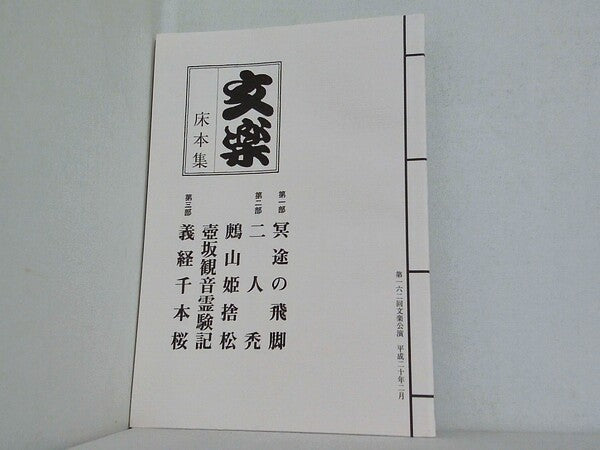 文楽
床本集
第一部 冥途の飛脚
第二部 二人禿
鶊山姫捨松
壺坂観音霊験記
第三部 義経千本桜
第一六二回文楽公演 平成二十年二月